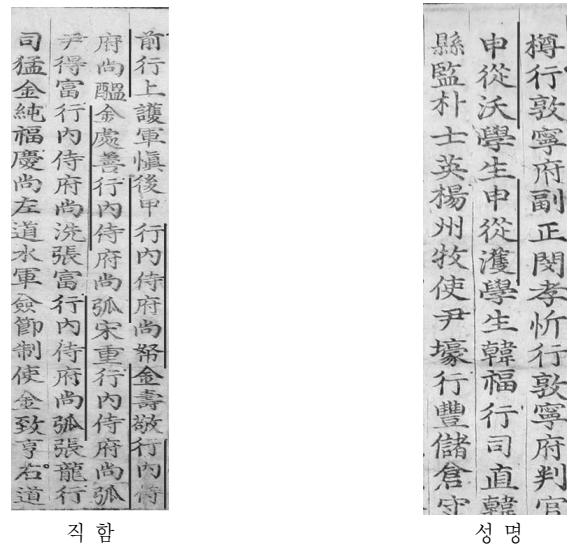 前行上護軍愼後甲行內侍府尚帑金壽敬行內侍
府尚醞金處善行內侍府尚弧宋重行內侍府尚弧
尹得富行內侍府尚洗張富行內侍府尚弧張龍行
司猛金純福慶尚左道水軍僉節制使金致亨右道
직함
樽行敦寧府副正閔孝忻行敦寧府判官
申從沃學生申從濩學生韓福行司直韓
縣監朴士英楊州牧使尹壕行豐儲倉守
성명